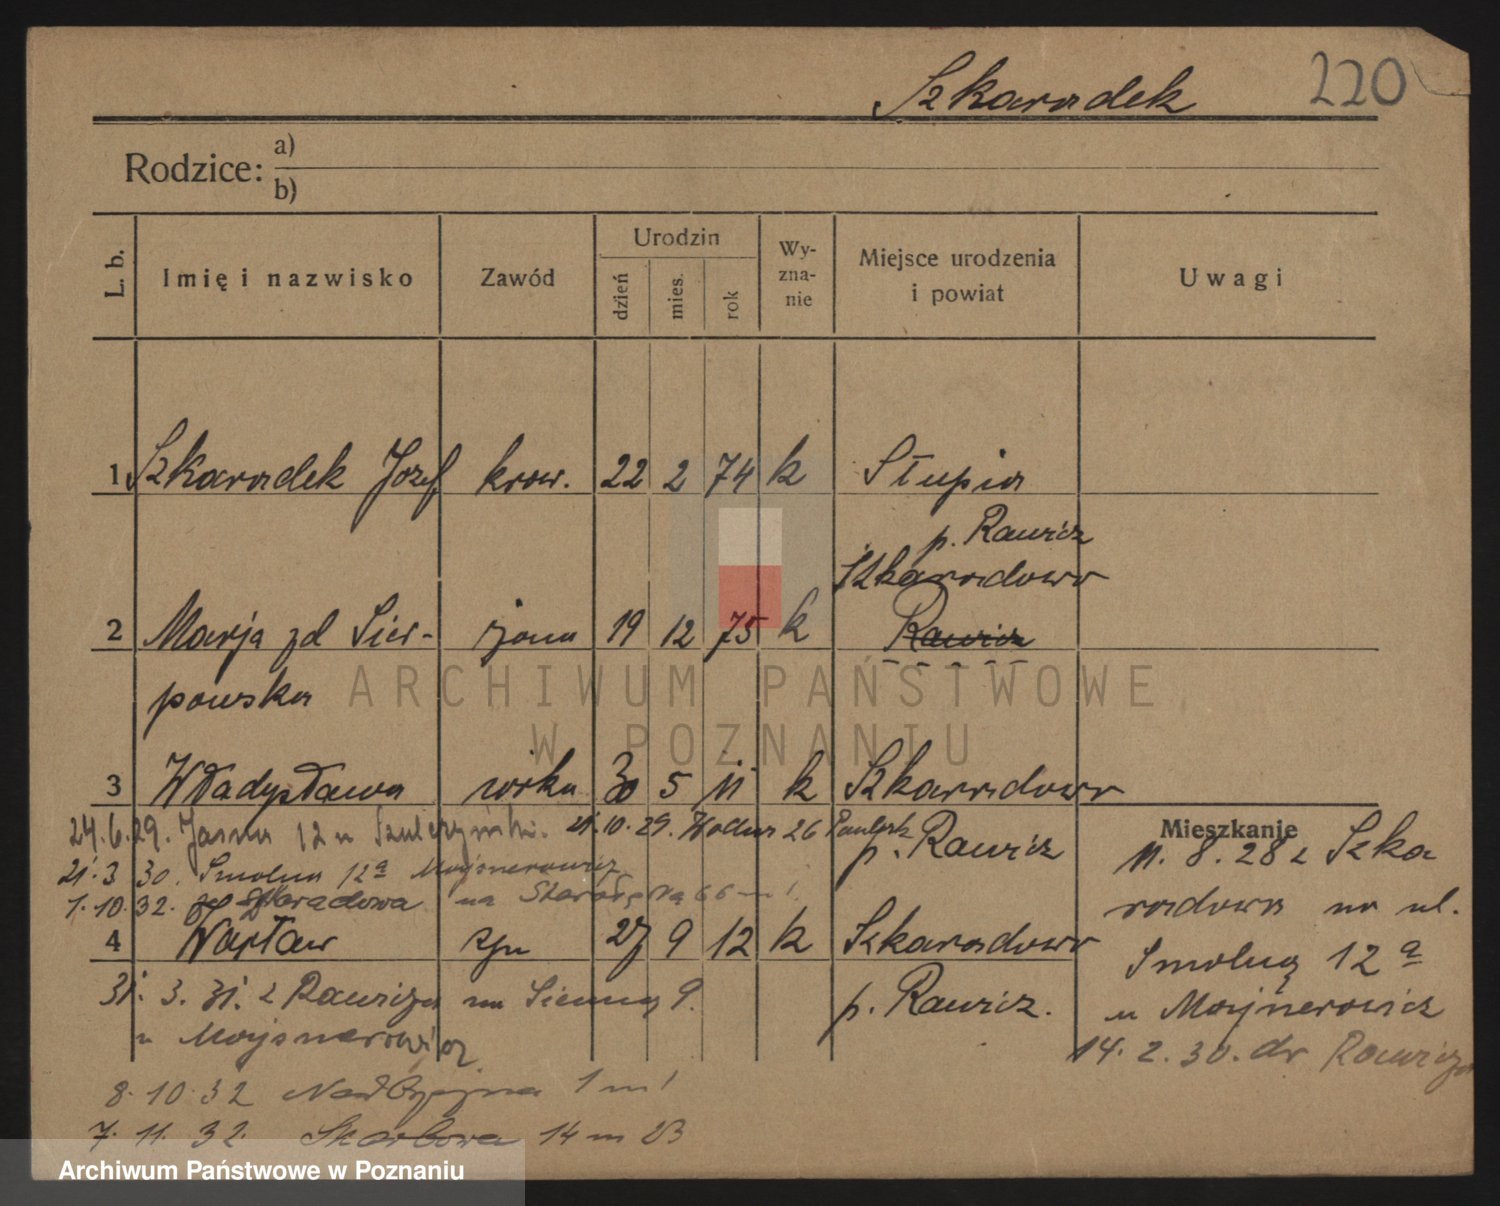 Szkaradek 220
Rodzice: a)
b)
L. b. Imię i nazwisko Zawód Urodzin dzień mies. rok Wy-zna-nie Miejsce urodzenia i powiat Uwagi
1 Szkaradek Józef krow. 22 2 74 k Słupia
p. Rawicz
Szkaradowo
2 Marja zd Sier- żona 19 12 75 k Rawicz
powska
3 Władysława 30 5 11 k Szkaradowo
Mieszkanie
24.6.29. Jasna 12 u 21.10.29. 26
p. Rawicz
11.8.28 z Szka
21.3 30. Smolna 12a Mojsnerowicz
1.10.32. na 66 m 1
radowa na ul.
4 Wacław 27 9 12 k Szkaradowo
Smolną 12 a
31. 3. 31. z Rawicza na Sienną 9.
p. Rawicz.
u Mojsnerowicz
u Mojsnerowicz
14. 2. 30. do Rawicza
8. 10. 32 1 m 1
7. 11. 32. Skarbowa 14 m 23
ARCHIWUM PAŃSTWOWE
W POZNANIU
Archiwum Państwowe w Poznaniu